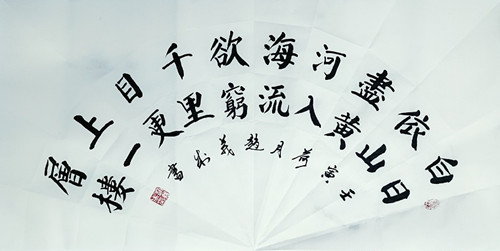 白日
依山
盡黃
河入
海流
欲窮
千里
目更
上一
層樓
壬寅荷月趙義書